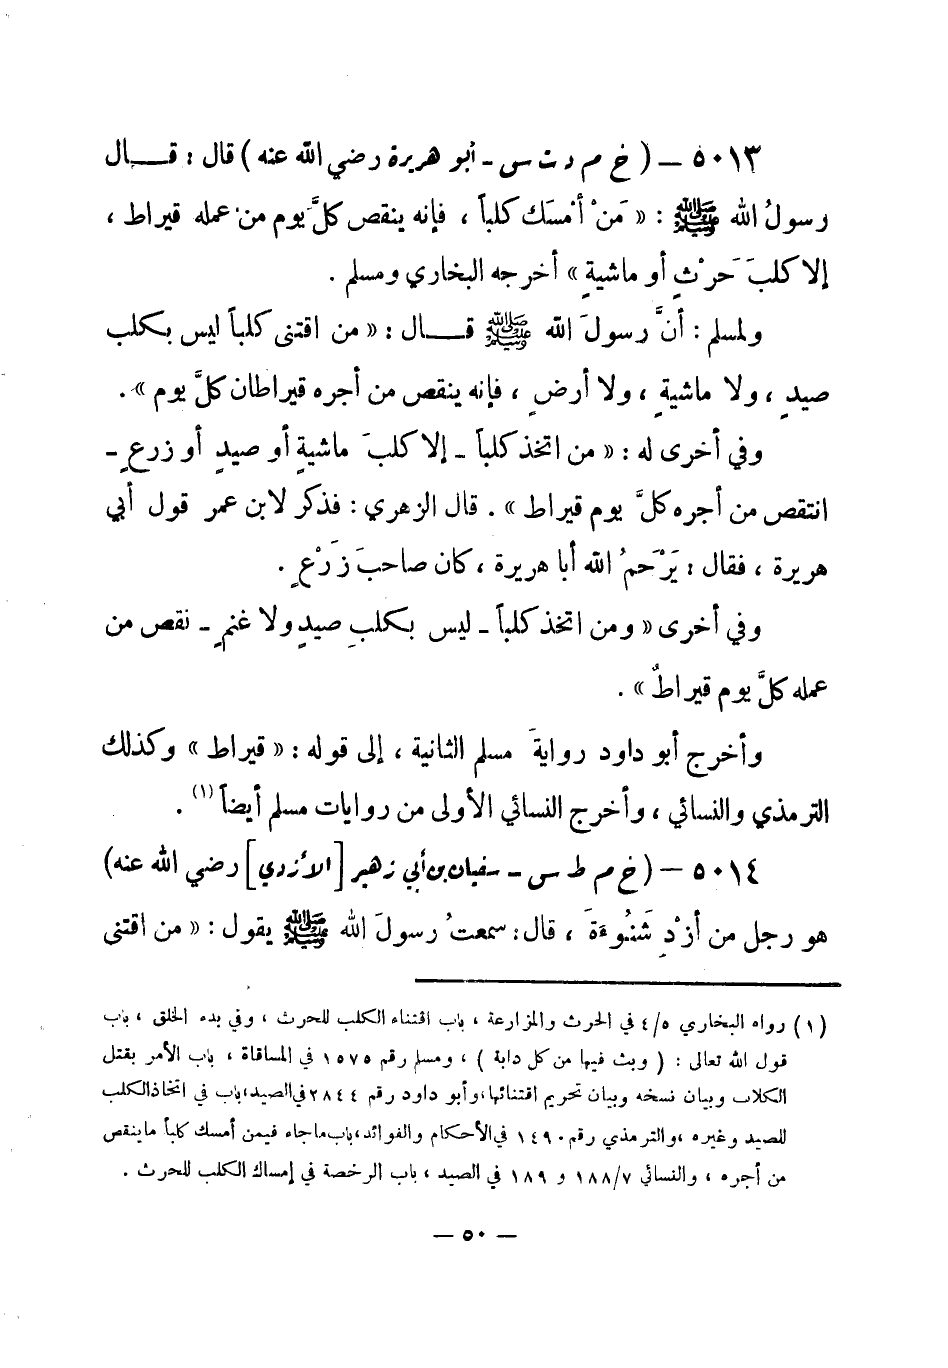 ٥٠١٣ – ( خ م د ت س – أبو هريرة رضي الله عنه ) قال : قـــال
رسولُ الله ﷺ : « مَنْ أمْسَك كلباً ، فإنه ينقص كلَّ يوم من عمله قيراط ،
إلا كلبَ حَرْثٍ أو ماشيةٍ » أخرجه البخاري ومسلم .
ولمسلم : أنَّ رسولَ الله ﷺ قـــال : « من اقتنى كلباً ليس بكلب
صيدٍ ، ولا ماشيةٍ ، ولا أرضٍ ، فإنه ينقص من أجره قيراطان كلَّ يوم » .
وفي أخرى له : « من اتخذ كلباً – إلا كلبَ ماشيةٍ أو صيدٍ أو زرعٍ –
انتقص من أجره كلَّ يوم قيراط » . قال الزهري : فذكر لابن عمر قول أبي
هريرة ، فقال : يَرْحَمُ الله أبا هريرة ، كان صاحبَ زَرْعٍ .
وفي أخرى « ومن اتخذ كلباً – ليس بكلبِ صيدٍ ولا غنمٍ – نقص من
عمله كلَّ يوم قيراطٌ » .
وأخرج أبو داود روايةَ مسلم الثانية ، إلى قوله : « قيراط » وكذلك
الترمذي والنسائي ، وأخرج النسائي الأولى من روايات مسلم أيضاً (١) .
٥٠١٤ – ( خ م ط س – سفيان بن أبي زهير [ الأزدي ] رضي الله عنه )
هو رجل من أزْدِ شَنُوءَةَ ، قال : سمعتُ رسولَ الله ﷺ يقول : « من اقتنى
(١) رواه البخاري ٤/٥ في الحرث والمزارعة ، باب اقتناء الكلب للحرث ، وفي بدء الخلق ، باب
قول الله تعالى : ( وبث فيها من كل دابة ) ، ومسلم رقم ١٥٧٥ في المساقاة ، باب الأمر بقتل
الكلاب وبيان نسخه وبيان تحريم اقتنائها ، وأبو داود رقم ٢٨٤٤ في الصيد ، باب في اتخاذ الكلب
للصيد وغيره ، والترمذي رقم ١٤٩٠ في الأحكام والفوائد ، باب ماجاء فيمن أمسك كلباً ما ينقص
من أجره ، والنسائي ١٨٨/٧ و ١٨٩ في الصيد ، باب الرخصة في إمساك الكلب للحرث .
– ٥٠ –